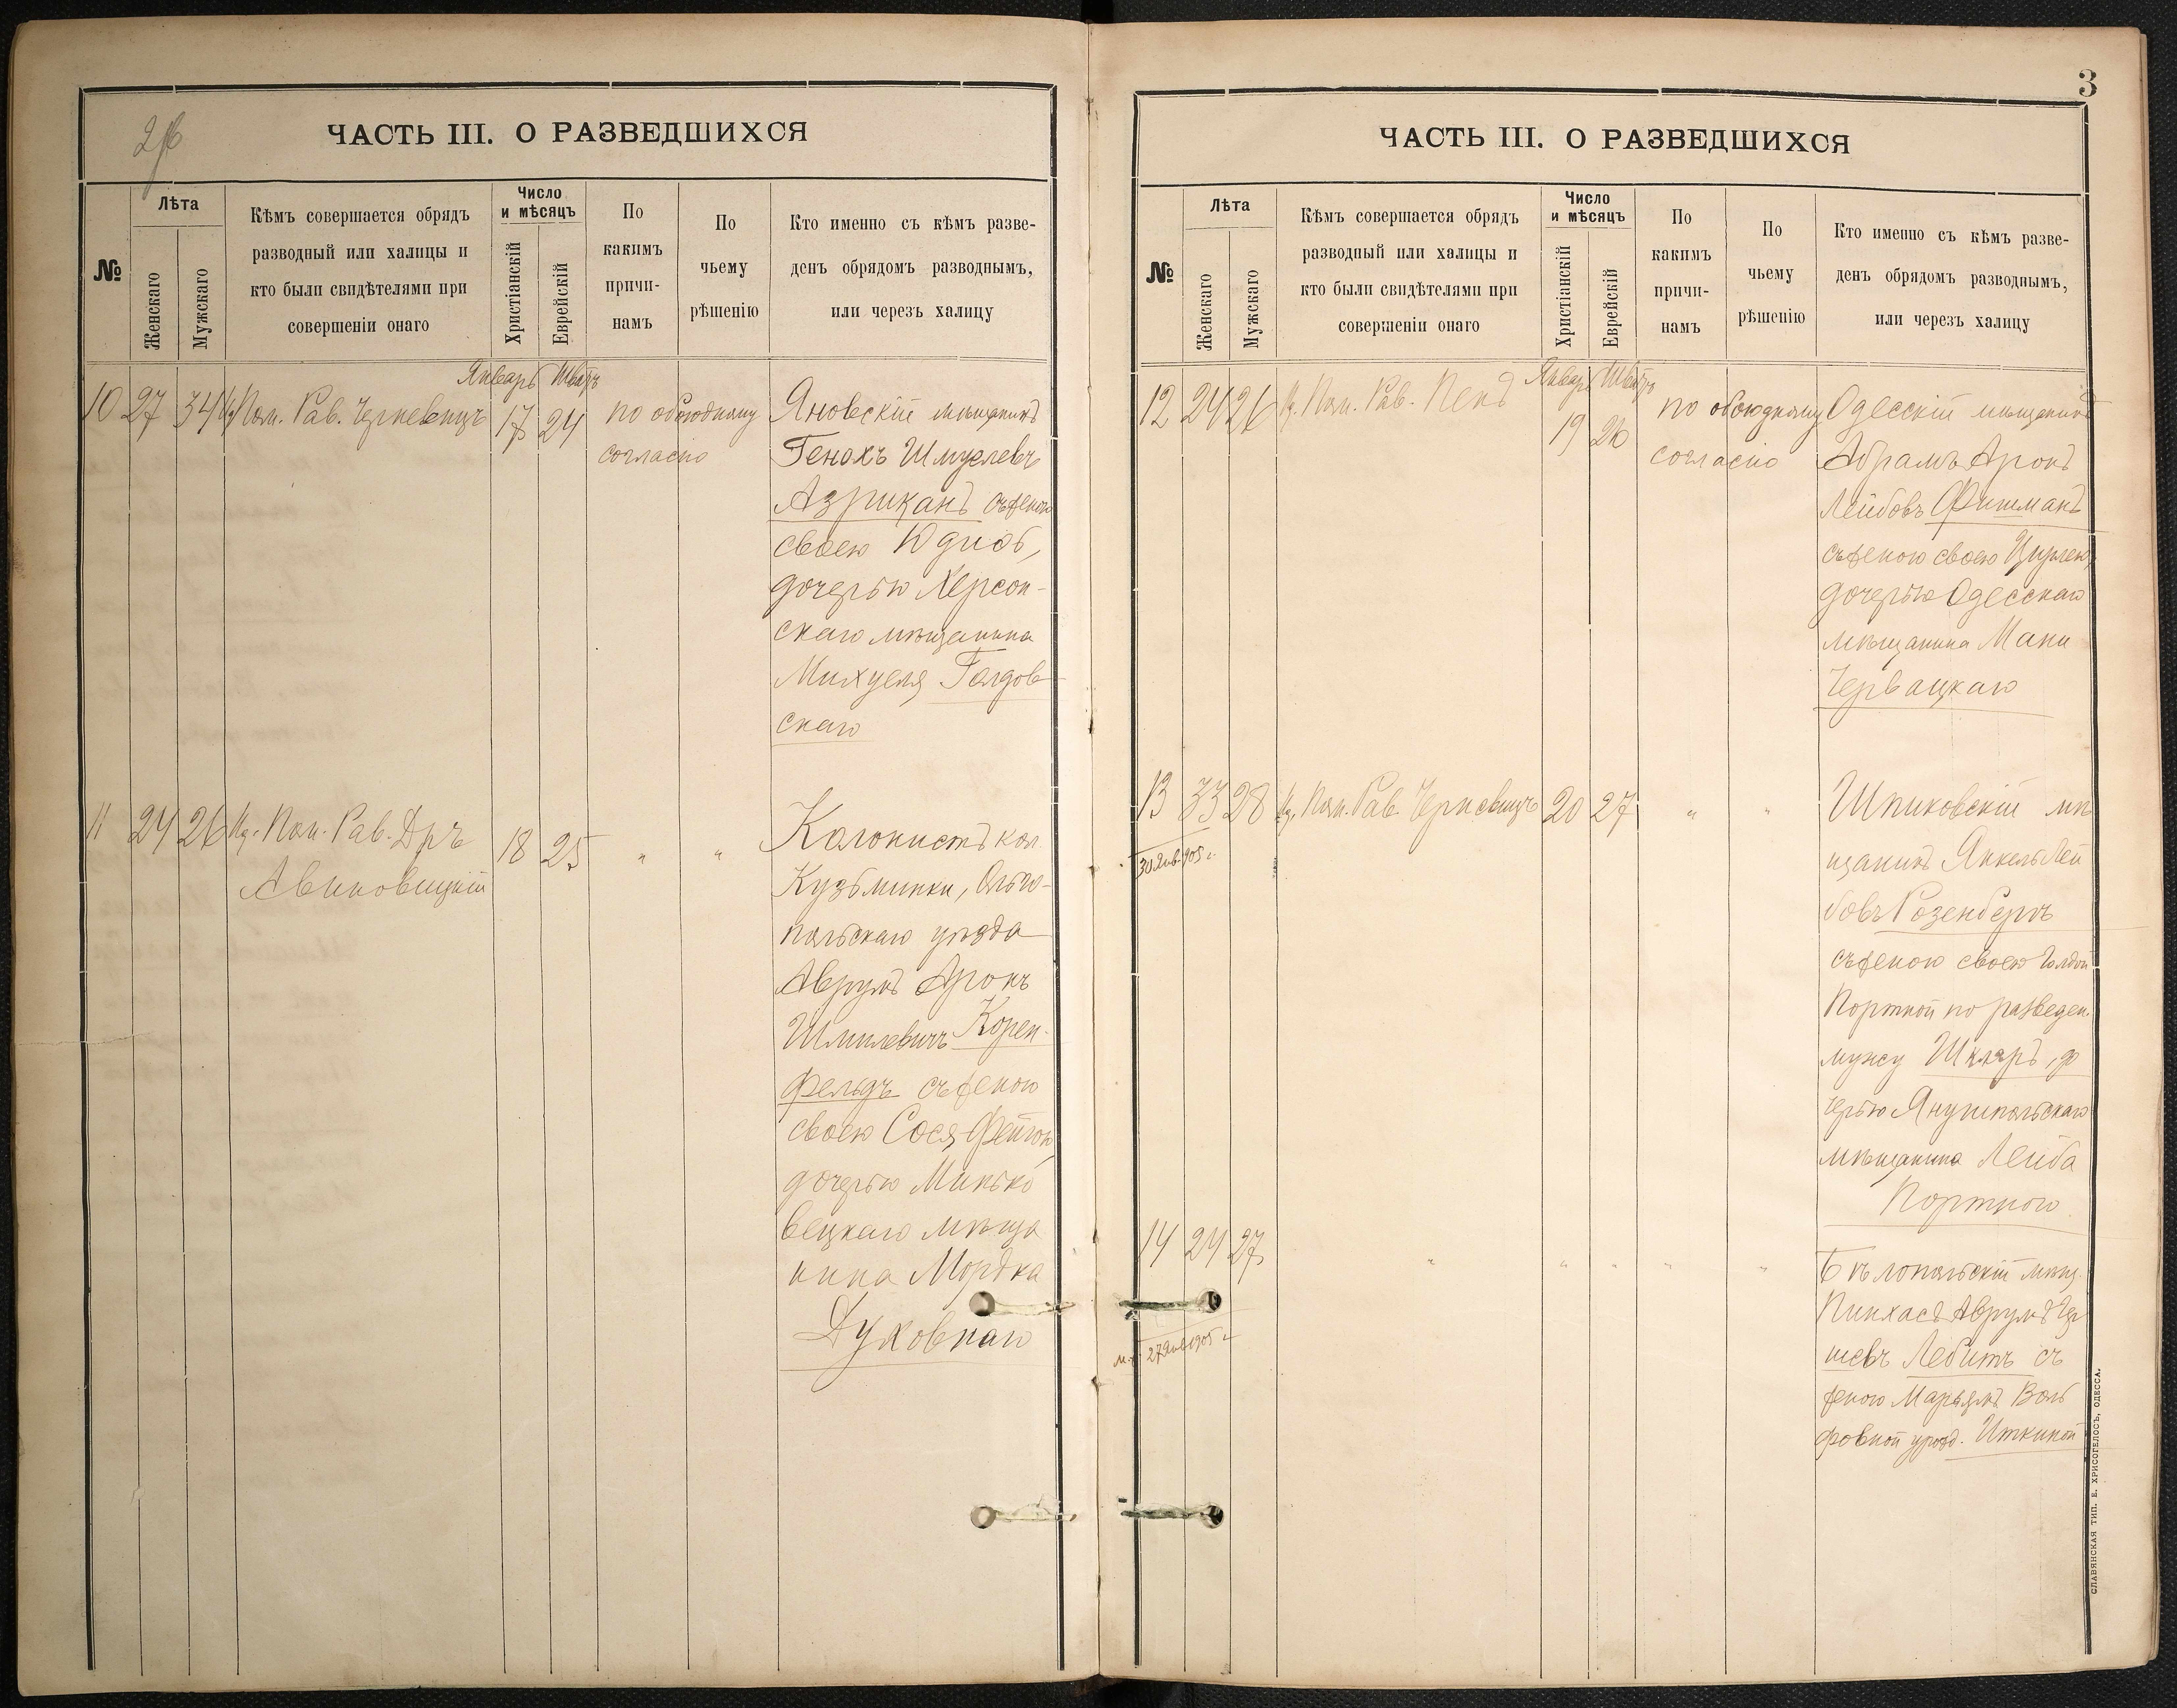 ЧАСТЬ III. О РАЗВЕДШИХСЯ
№
Лѣта
Женскаго
Мужскаго
Кѣмъ совершается обрядъ
разводный или халицы и
кто были свидѣтелями при
совершеніи онаго
Число
и мѣсяцъ
Христіанскій
Еврейскій
По
какимъ
причи-
намъ
По
чьему
рѣшенію
Кто именно съ кѣмъ разве-
денъ обрядомъ разводнымъ,
или черезъ халицу
Январь Шватъ
10 27 34 Пом. Рав. Черневицъ 17 24 по обоюдному
согласію
Яновскій мѣщанинъ
Генахъ Шмулевъ
Азриканъ съ женою
своею Юдиѳ,
дочерью Херсон-
скаго мѣщанина
Михуеля Голдов-
скаго
11 24 26 Пом. Рав. Дръ 18 25 " "
Авиновицкій
Колонистъ кол.
Кузьминки, Ольго-
польскаго уѣзда
Аврумъ Аронъ
Шмилевичъ Корен-
фельдъ съ женою
своею Сося Фейгою,
дочерью Минько
вецкаго мѣща
нина Мордка
Духовнаго
3
ЧАСТЬ III. О РАЗВЕДШИХСЯ
№
Лѣта
Женскаго
Мужскаго
Кѣмъ совершается обрядъ
разводный или халицы и
кто были свидѣтелями при
совершеніи онаго
Число
и мѣсяцъ
Христіанскій
Еврейскій
По
какимъ
причи-
намъ
По
чьему
рѣшенію
Кто именно съ кѣмъ разве-
денъ обрядомъ разводнымъ,
или черезъ халицу
Январь Шватъ
12 24 26 Пом. Рав. Пенъ 19 26 по обоюдному
согласію
Одесскій мѣщанинъ
Абрамъ Аронъ
Лейбовъ Фишманъ
съ женою своею Цирлею,
дочерью Одесскаго
мѣщанина Мани
Червацкаго
13 33 28 Пом. Рав. Черневицъ 20 27 " "
30 Янв. 905 г.
Шпиковскій мѣ
щанинъ Янкель Лей
бовъ Розенбергъ
съ женою своею Голдой
Портной по разведен.
мужу Шкляръ, до
черью Янушпольскаго
мѣщанина Лейба
Портного
14 24 27 " " " " "
27 Янв 905 г.
Бѣлопольскій мѣщ.
Пинхасъ Аврумъ Гер
шевъ Лебитъ съ
женою Марьямъ Воль
фовной урожд. Иткиной
СЛАВЯНСКАЯ ТИП. Е. ХРИСОГЕЛОСЪ, ОДЕССА.